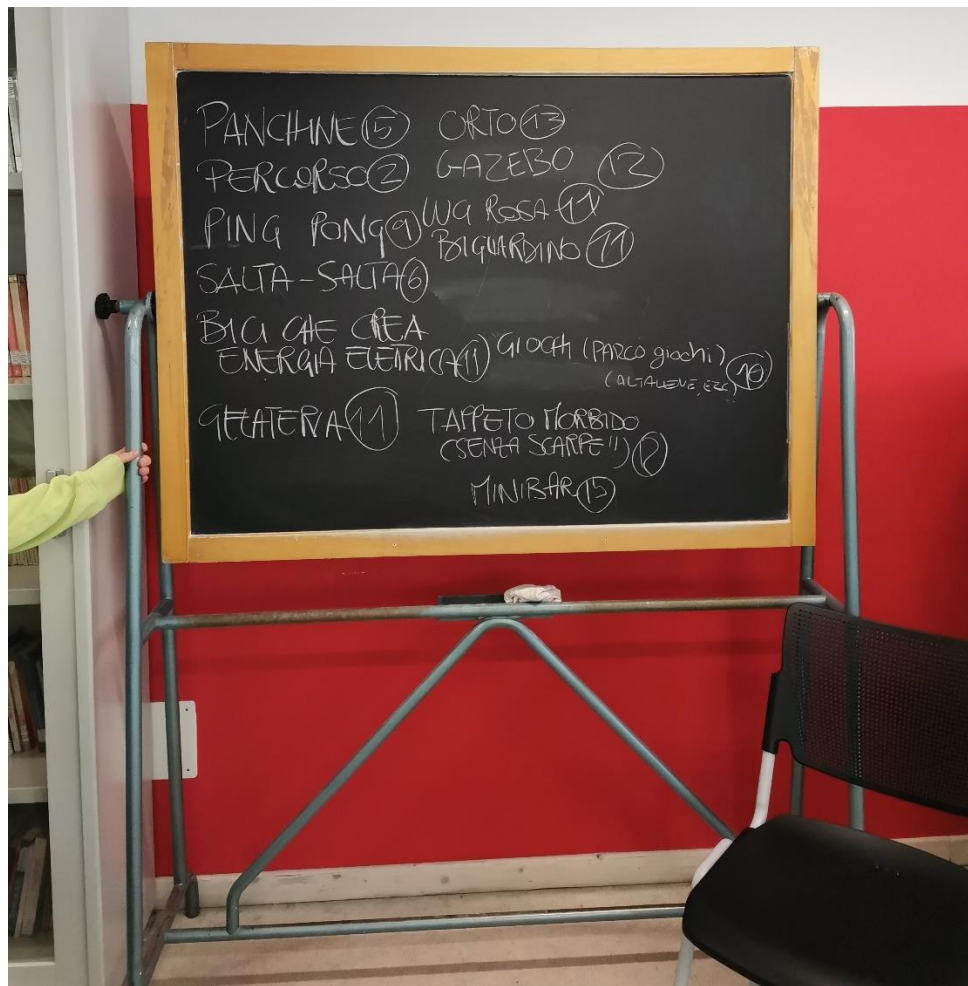 PANCHINE 15
PERCORSO 2
PING PONG 9
SALTA-SALTA 6
BICI CHE CREA
ENERGIA ELETRICA 11
GELATERIA 11
ORTO 13
GAZEBO 12
ROSA 11
BIGLIARDINO 11
GIOCHI (PARCO giochi) 10
(ALTALENE, EZC)
TAPPETO MORBIDO
(SENZA SCARPE!!) 12
MINIBAR 15